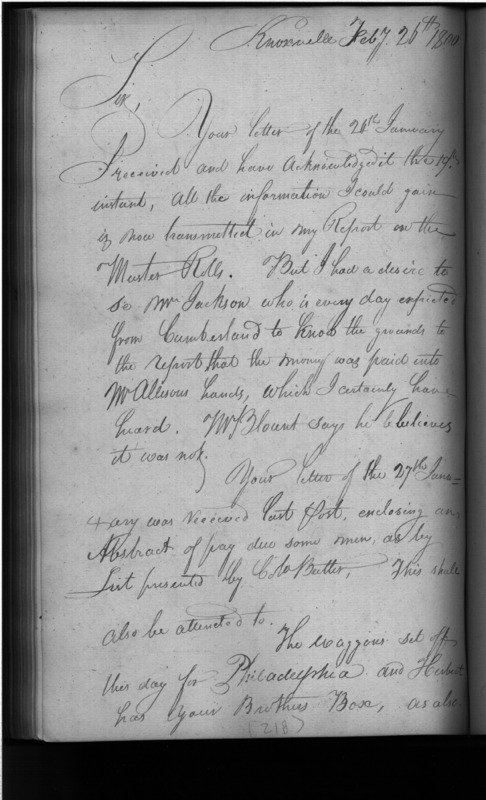 Knoxville Feby. 26th 1800
Sir,
Your letter of the 24th January
I received and have acknowledged it the 19th
instant, all the information I could gain
is now transmitted in my Report on the
Muster Rolls. But I had a desire to
se Mr Jackson who is every day expected
from Cumberland to know the grounds to
the report that the money was paid into
Mr Allisons hands, which I certainly have
heard. Mr Blount says he believes
it was not.
Your letter of the 27th Janu=
ary was received last Post, enclosing an
Abstract of pay due some men, as by
List presented by Colo Butler, This shall
also be attended to.
The waggons set off
this day for Philadelphia and Herbert
has your Brothers Box, as also
(218)